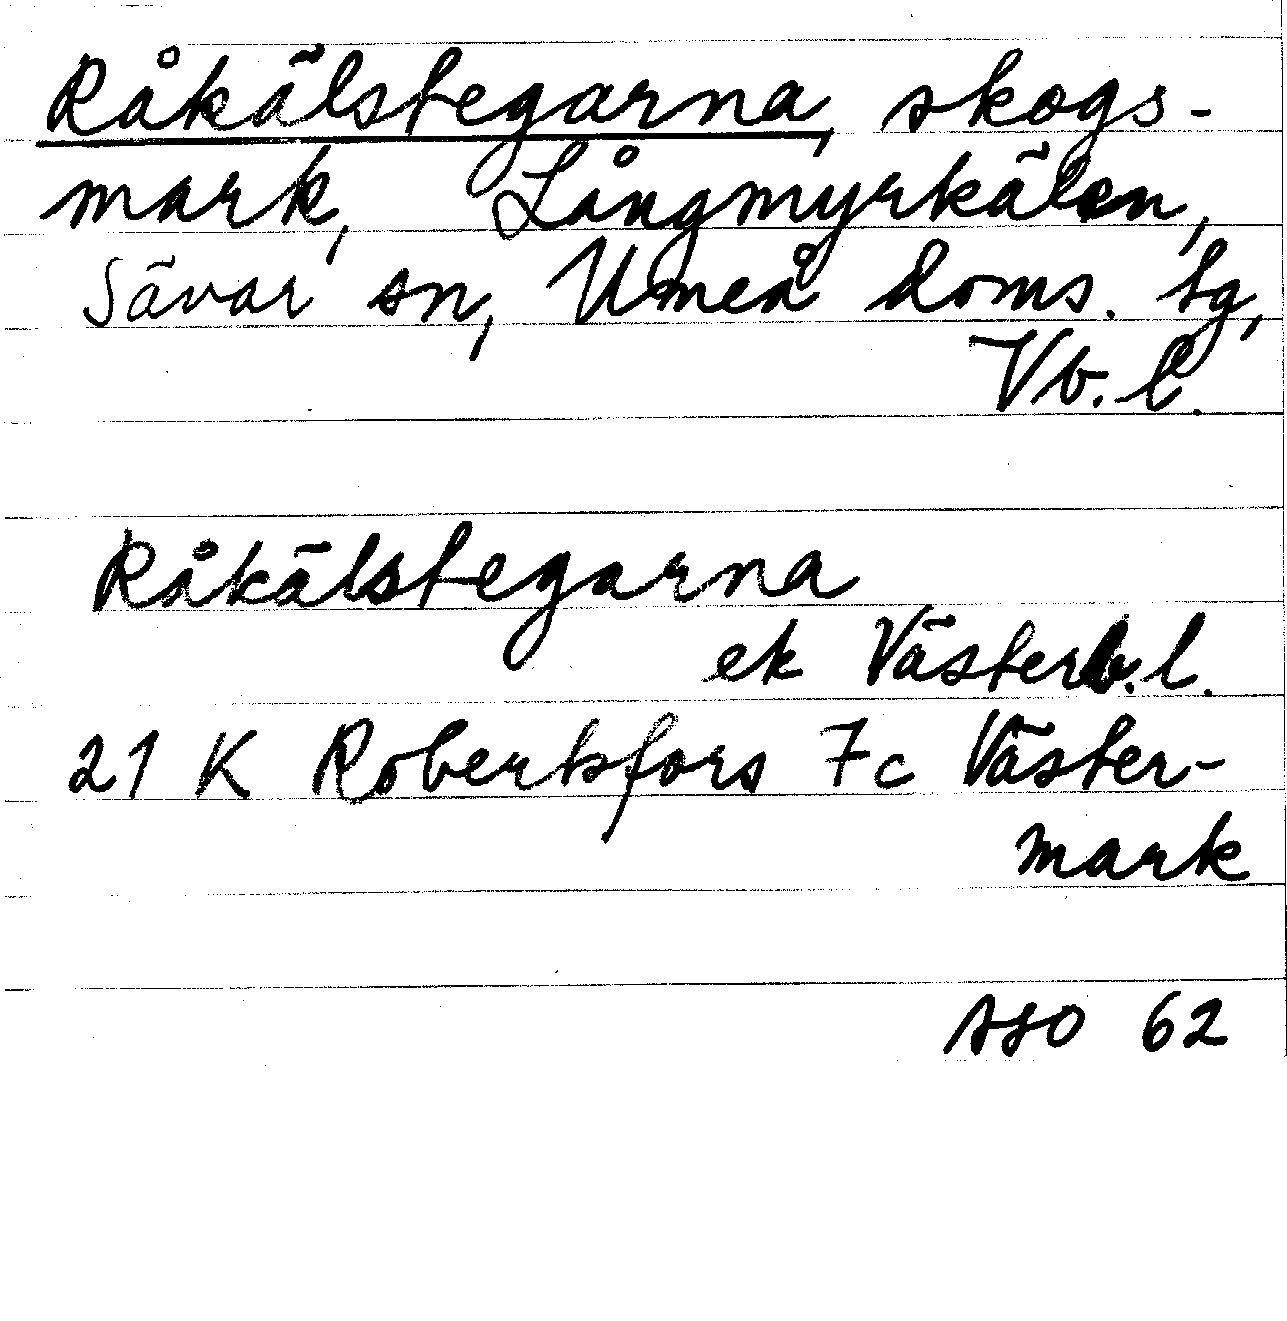 Råkälstegarna, skogs-
mark, Långmyrkälen,
Sävar sn, Umeå doms. tg,
Vb. l.
Råkälstegarna
ek Västerb. l.
21 K Robertsfors 7c Väster-
mark
62